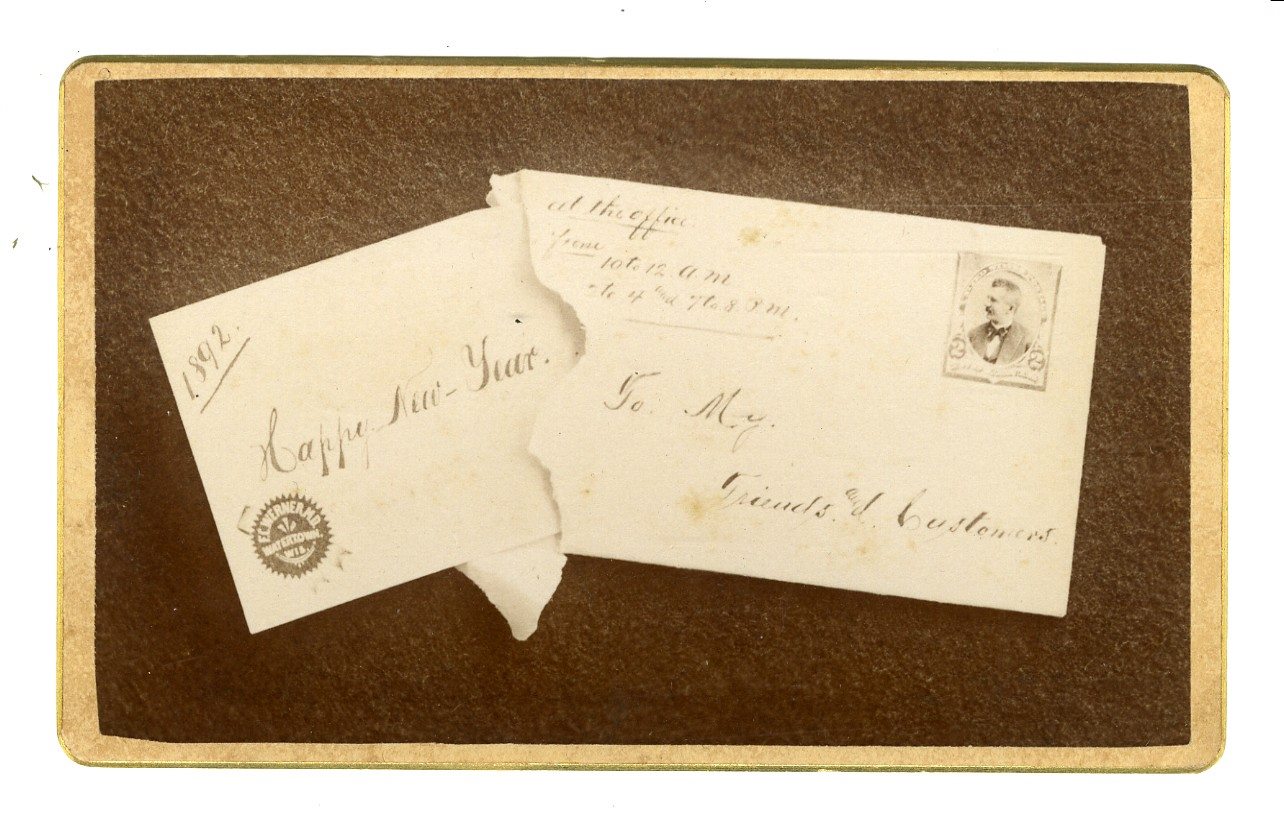 1892.
Happy New-Year.
WATERTOWN.
WIS.
at the office.
10 to 12 a m
to 4 and 7 to 8 P.M.
To. My.
Friends. and. Customers.
2 2